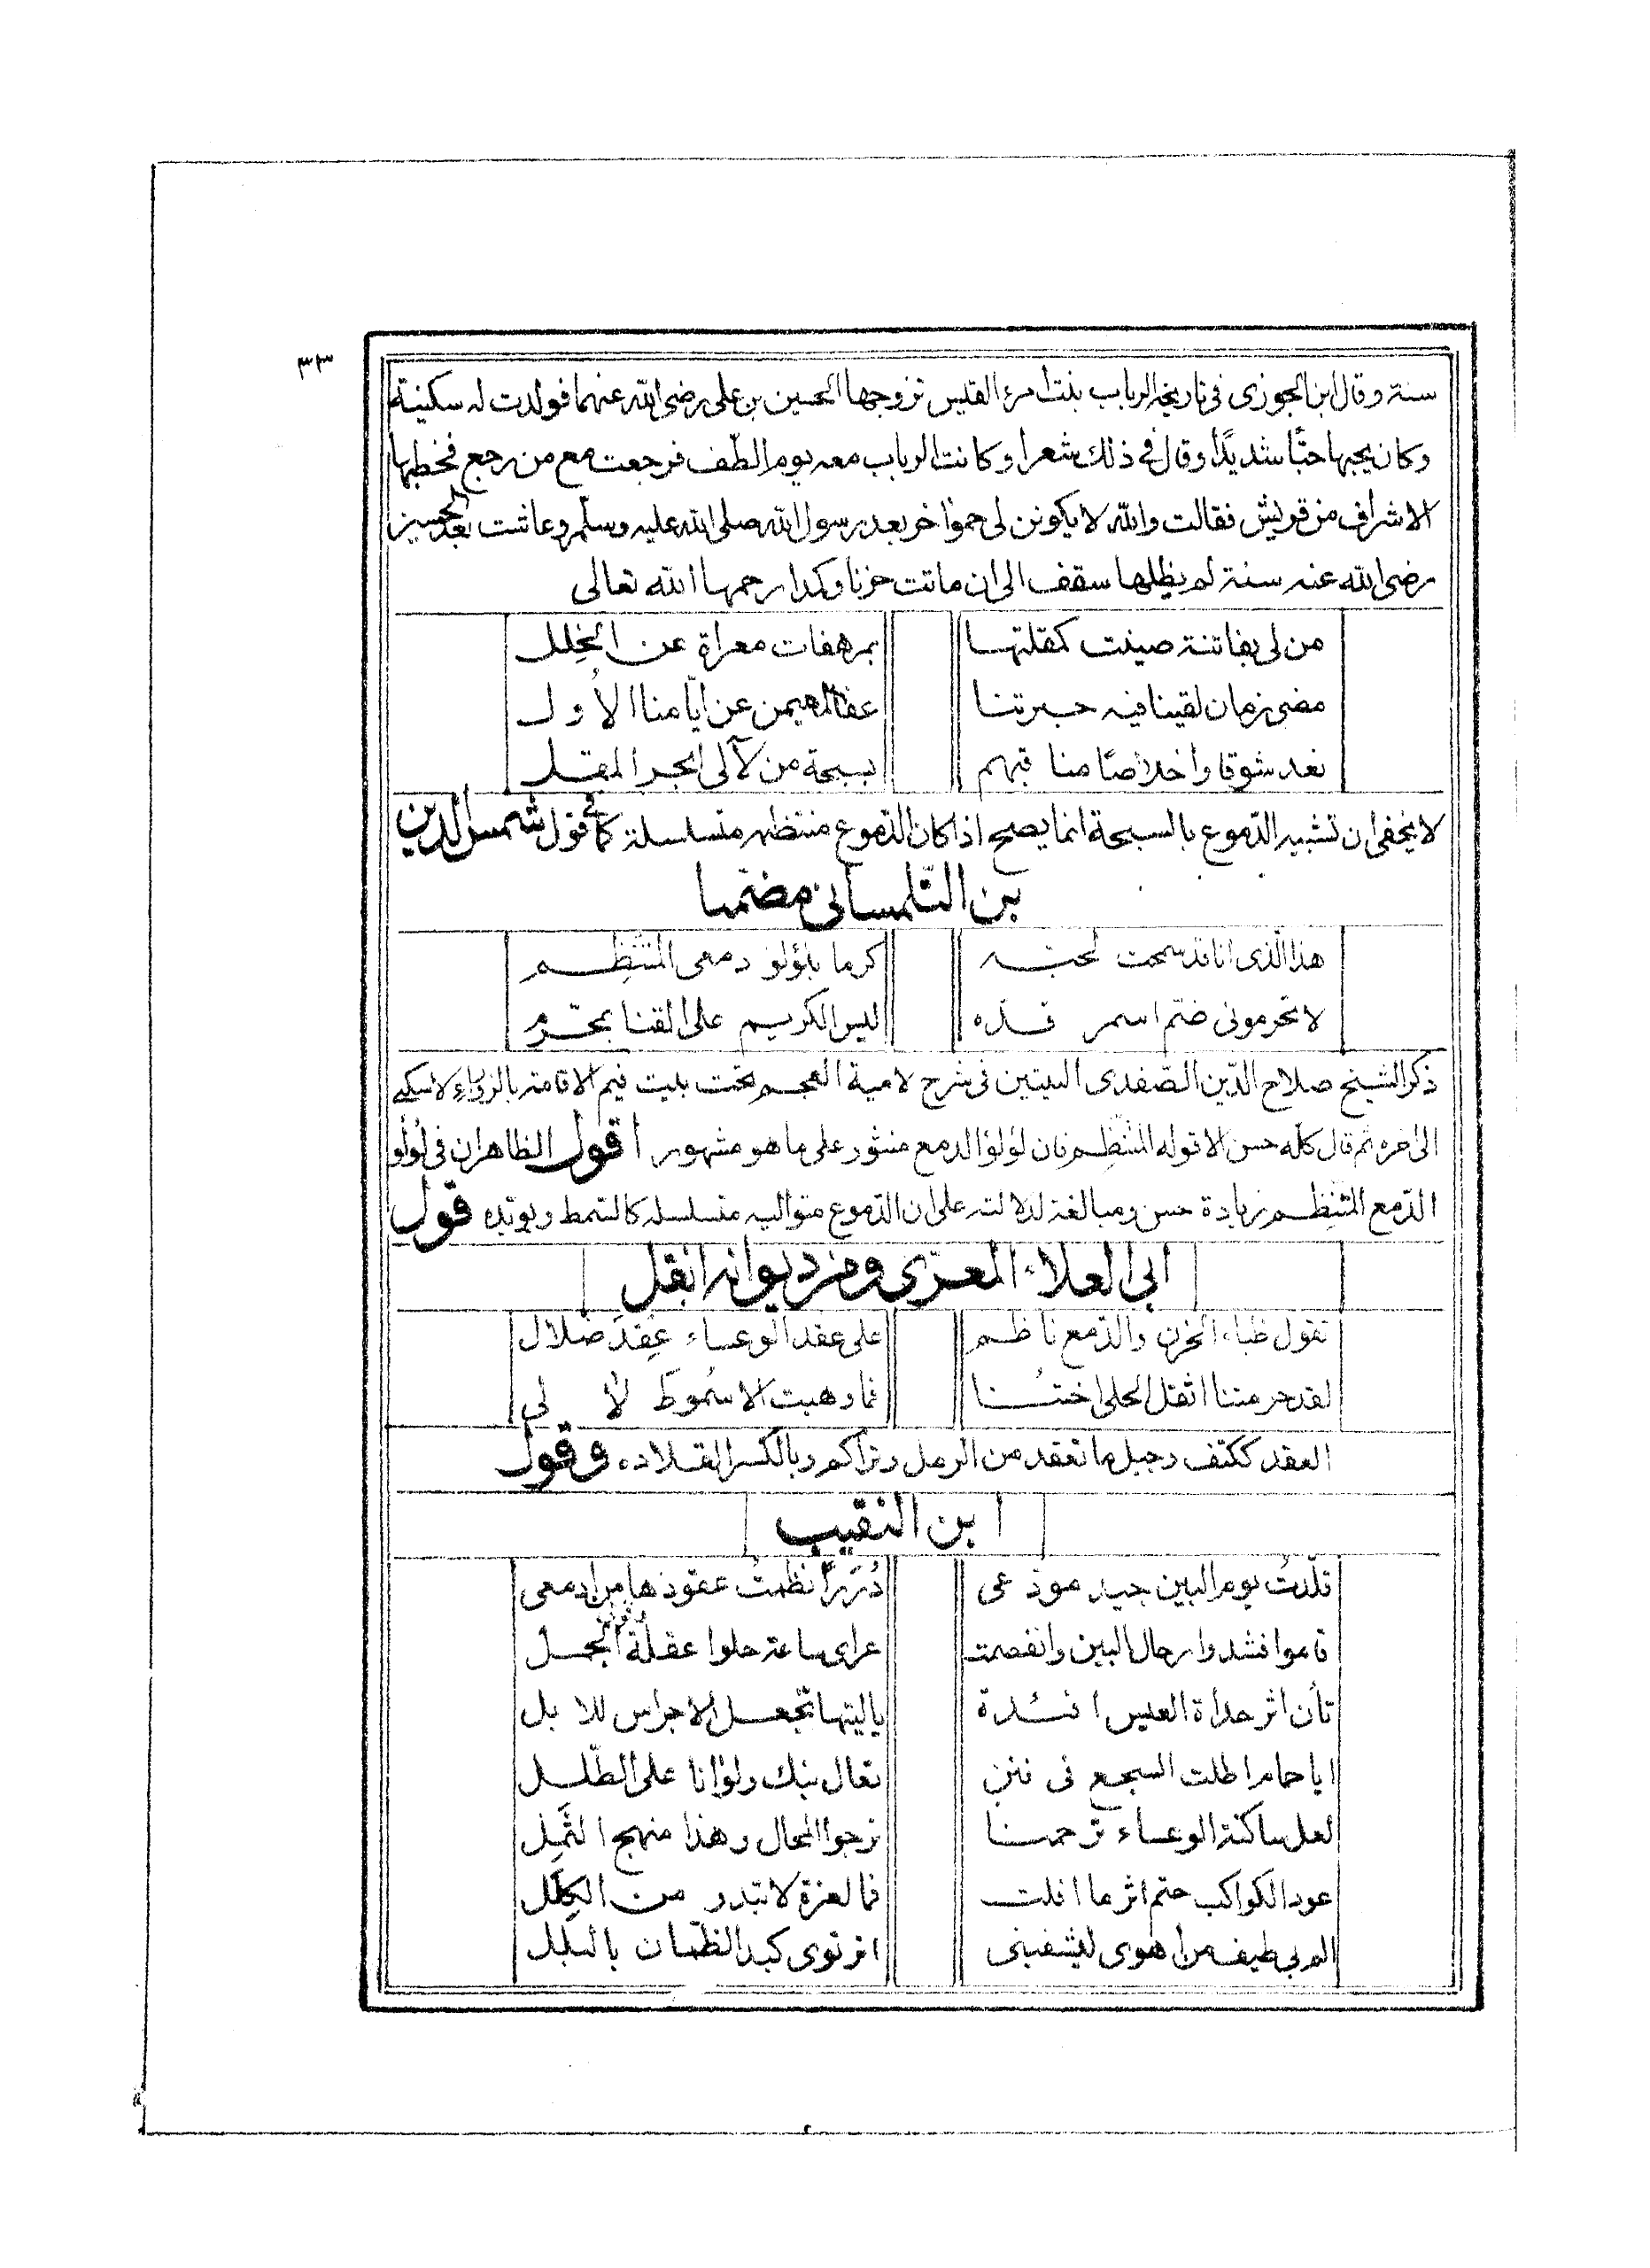 ٣٣
سنة وقال ابن الجوزى فى تاريخه الرباب بنت امرء القيس تزوجها الحسين بن على رضى الله عنهما فولدت له سكينة
وكان يحبها حبًّا شديدًا وقال فى ذلك شعرا وكانت الرباب معه يوم الطّف فرجعت مع من رجع فخطبها
الاشراف من قريش فقالت والله لا يكونن لى حموٌ اخر بعد رسول الله صلى الله عليه وسلّم وعاشت بعد الحسين
رضى الله عنه سنة لم يظلها سقف الى ان ماتت حزنا وكمدا رحمها الله تعالى
من لى بفاتنة صينت كمقلتها بمرهفات معراة عن الخِلل
مضى زمان لقينا فيه جيرتنا عفا المهيمن عن ايّامنا الأول
نعد شوقا واخلاصًا منا قبهم بسبحة من لآلى ابحر المقل
لا يخفى ان تشبيه الدّموع بالسبحة انما يصح اذا كان الدّموع منتظمه متسلسلة كما فى قول شمس الدين
بن التّلمسانى مضمّنا
هذا الّذى انا قد سمحت لحبّه كرما بلؤلؤ دمعى المنتَظِم
لا تحرمونى ضمّ اسمر قدّه ليس الكريم على القنا بمحرّم
ذكر الشيخ صلاح الدّين الصّفدى البيتين فى شرح لامية العجم تحت بيت فيم الاقامة بالزوراءِ لا سكنى
الى اخره ثم قال كلّه حسن الا قوله المنتظِم فان لؤلؤ الدمع منثور على ما هو مشهور اقول الظاهر ان فى لؤلؤ
الدّمع المنتظِم زيادة حسن ومبالغة لدلالته على ان الدّموع متواليه متسلسله كالسّمط ويؤيّده قول
ابى العلاء المعرّى ومن ديوانه انقل
تقول ظباء الحزن والدّمع ناظم على عقد الوعساء عِقدَ ضلال
لقد حرمتنا اثقل الحلى اختُنا فما وهبت الا سُموطَ لألى
العقد ككتف وجبل ما تعقد من الرمل وتراكم وبالكسر القلاده وقول
ابن النقيب
قلّدتُ يوم البين جيد مودّعى دُرَرًا نظمتُ عقودها من ادمعى
قاموا فشدوا رحال البين وانفصمت عراى ساعة حلوا عقلة الجمل
تأن اثر حداة العيس افئدة يا ليتها تجعل الاجراس للابل
ايا حماما اطلت السجع فى فنن تعال نبك ولو انا على الطّلل
لعل ساكنة الوعساء ترحمنا نرجو المحال وهذا منهج الثَّمِل
عود الكواكب حتم اثر ما افلت فما لعزة لا تبدو من الكِلَل
الم بى طيف من اهوى ليشفينى اترتوى كبد الظمان بالبلل